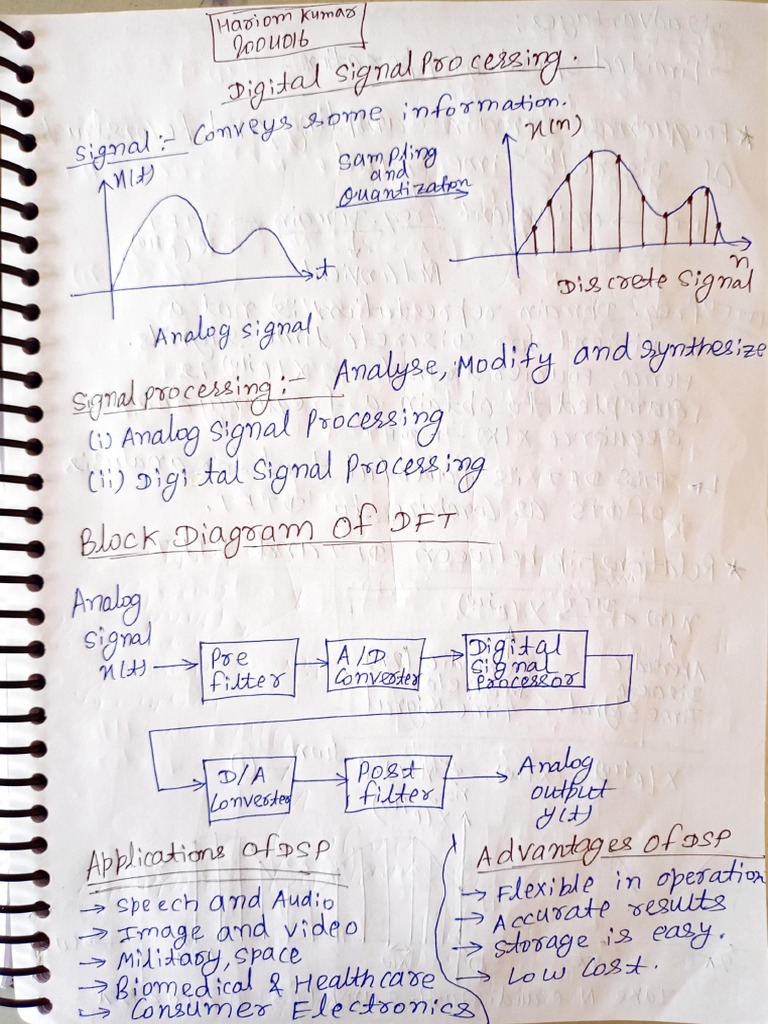 Hariom Kumar
2004016
Digital Signal Processing.
Signal :- Conveys some information.
x(t)
Sampling
and
Quantization
x(n)
t
n
Analog signal
Discrete Signal
Signal processing :- Analyse, Modify and synthesize
(i) Analog Signal Processing
(ii) Digital Signal Processing
Block Diagram Of DFT
Analog
Signal
x(t)
Pre
filter
A/D
Converter
Digital
Signal
Processor
D/A
Converter
Post
filter
Analog
output
y(t)
Applications Of DSP
→ Speech and Audio
→ Image and video
→ Military, Space
→ Biomedical & Healthcare
→ Consumer Electronics
Advantages Of DSP
→ Flexible in operation
→ Accurate results
→ Storage is easy.
→ Low Cost.